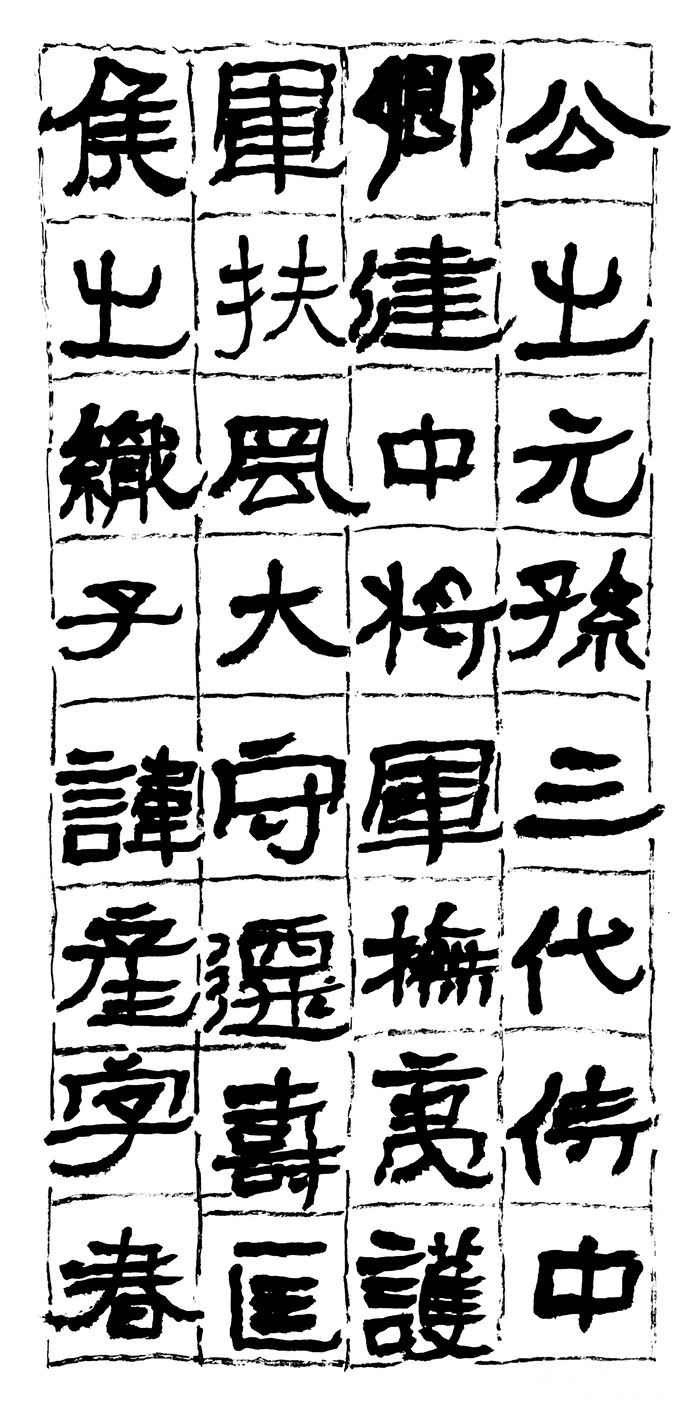 公之元孫三代侍中
卿建中將軍撫夷護
軍扶風大守遷壽匡
侯之纖子諱產字春